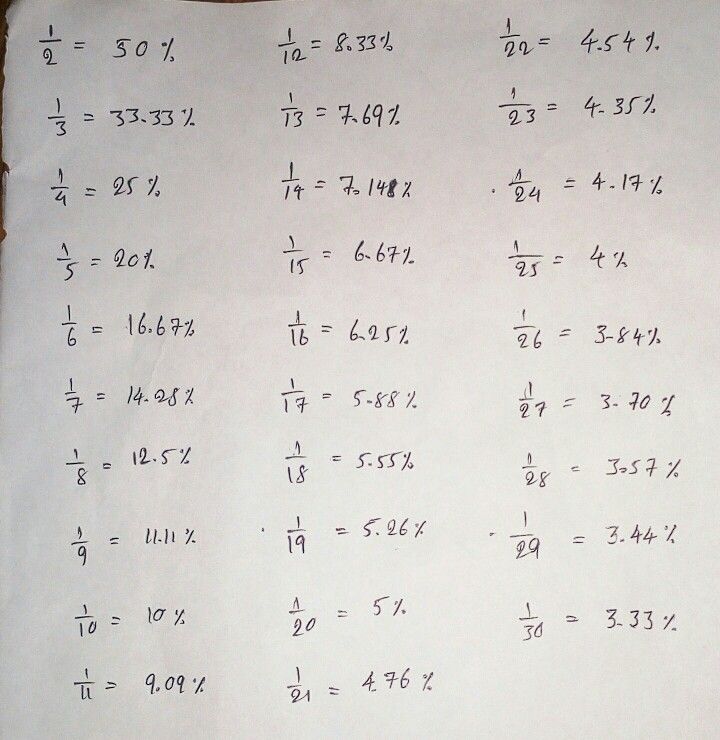 1/2 = 50%
1/3 = 33.33%
1/4 = 25%
1/5 = 20%
1/6 = 16.67%
1/7 = 14.28%
1/8 = 12.5%
1/9 = 11.11%
1/10 = 10%
1/11 = 9.09%
1/12 = 8.33%
1/13 = 7.69%
1/14 = 7.14%
1/15 = 6.67%
1/16 = 6.25%
1/17 = 5.88%
1/18 = 5.55%
1/19 = 5.26%
1/20 = 5%
1/21 = 4.76%
1/22 = 4.54%
1/23 = 4.35%
1/24 = 4.17%
1/25 = 4%
1/26 = 3.84%
1/27 = 3.70%
1/28 = 3.57%
1/29 = 3.44%
1/30 = 3.33%